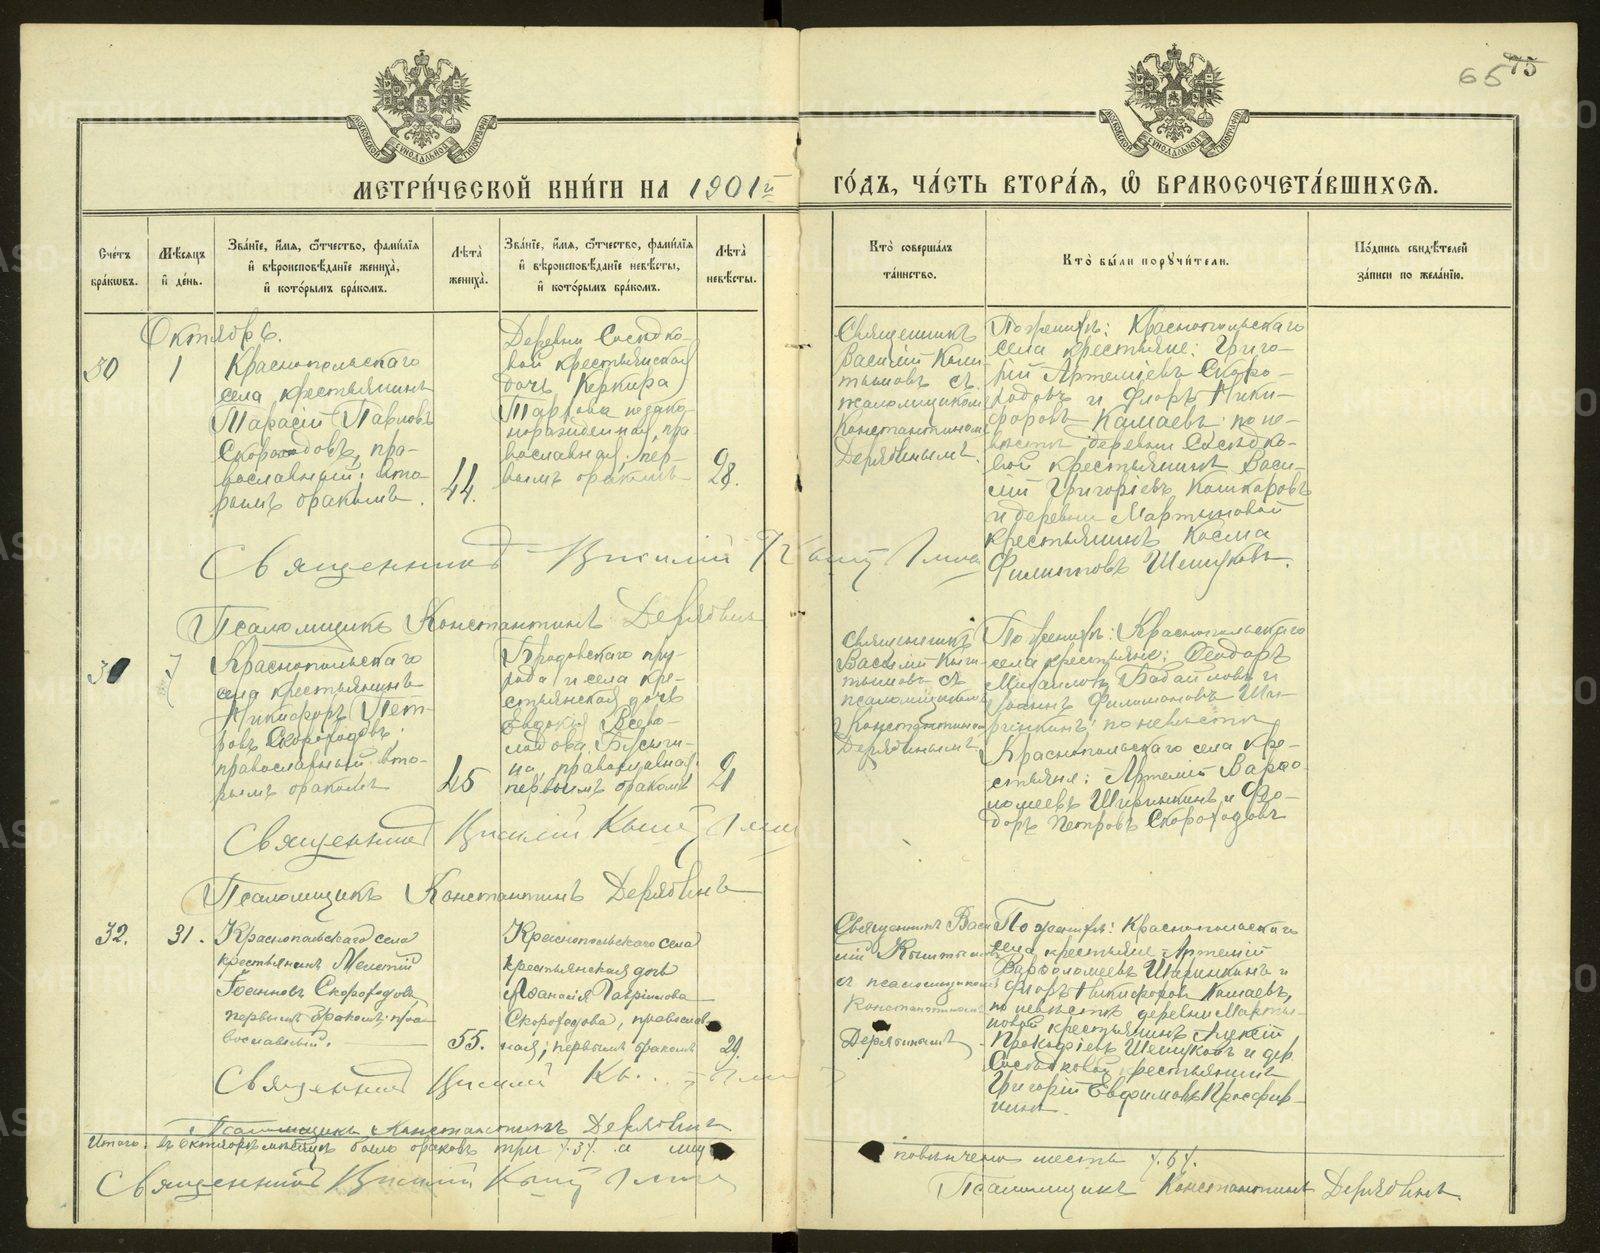 65 75
МЕТРИ́ЧЕСКОЙ КНИ́ГИ НА 1901й ГО́ДЪ, ЧА́СТЬ ВТОРА́Я, Ѡ҆ БРАКОСОЧЕТА́ВШИХСЯ.
Сче́тъ бра́кѡвъ.
Мѣ́сяцъ и҆ де́нь.
Зва́нїе, и҆́мя, ѻ҆́тчество, фами́лїя и҆ вѣроисповѣ́данїе жениха̀, и҆ кото́рымъ бра́комъ.
Лѣта̀ жениха̀.
Зва́нїе, и҆́мя, ѻ҆́тчество, фами́лїя и҆ вѣроисповѣ́данїе невѣ́сты, и҆ кото́рымъ бра́комъ.
Лѣта̀ невѣ́сты.
Кто̀ соверша́лъ та́инство.
Кто̀ бы́ли порꙋчи́тели.
По́дпись свидѣ́телей за́писи по жела́нїю.
Октябрь.
30
1
Краснопольскаго
села крестьянинъ
Тарасій Павловъ
Скороходовъ, пра-
вославный; вто-
рымъ бракомъ.
44.
Деревни Сосѣдко-
вой крестьянская
дочь Керкира
незако-
норожденная, пра-
вославная; пер-
вымъ бракомъ
28.
Священникъ
Василій Кыш-
тымовъ съ
псаломщикомъ
Константиномъ
Дерябинымъ.
По женихѣ: Краснопольскаго
села крестьяне: Григо-
рій Артемьевъ Скоро-
ходовъ и Флоръ Ники-
форовъ Камаевъ; по не-
вѣстѣ деревни Сосѣдко-
вой крестьянинъ Васи-
лій Григорьевъ Кошкаровъ
и деревни Мартыновой
крестьянинъ Косма
Филипповъ Шешуковъ.
Священникъ Василій
Псаломщикъ Константинъ Дерябинъ
31
7
Краснопольскаго
села крестьянинъ
Никифоръ Пет-
ровъ Скороходовъ,
православный: вто-
рымъ бракомъ
45
Бродовскаго при-
хода и села кре-
стьянская дочь
Евдокія Всево-
лодова Бусыги-
на, православная,
первымъ бракомъ
21
Священникъ
Василій Кыш-
тымовъ съ
псаломщикомъ
Константиномъ
Дерябинымъ
По женихѣ: Краснопольскаго
села крестьяне: Ѳеодоръ
Михаиловъ Бабайловъ и
Іоаннъ Филимоновъ Ши-
ринкинъ; по невѣстѣ
Краснопольскаго села кре-
стьяне: Артемій Варѳо-
ломеевъ Ширинкинъ и Ѳео-
доръ Петровъ Скороходовъ
Священникъ Василій
Псаломщикъ Константинъ Дерябинъ
32.
31.
Краснопольскаго села
крестьянинъ Мелетій
Іоанновъ Скороходовъ,
первымъ бракомъ; пра-
вославный.
55.
Краснопольскаго села
крестьянская дочь
Аѳанасія Гавріилова
Скороходова, православ-
ная; первымъ бракомъ
21.
Священникъ Васи-
лій Кыштымовъ
съ псаломщикомъ
Константиномъ
Дерябинымъ
По женихѣ: Краснопольскаго
села крестьяне Артемій
Варѳоломеевъ Ширинкинъ и
Флоръ Никифоровъ Камаевъ,
по невѣстѣ деревни Марты-
новой крестьянинъ Алексій
Прокопіевъ Шешуковъ и дер.
Сосѣдковой крестьянинъ
Григорій Евфимовъ
Священникъ Василій
Псаломщикъ Константинъ Дерябинъ
Итого: въ Октябрѣ мѣсяцѣ было браковъ три /.3/. а лицъ повѣнчано шесть /.6/.
Священникъ Василій
Псаломщикъ Константинъ Дерябинъ.